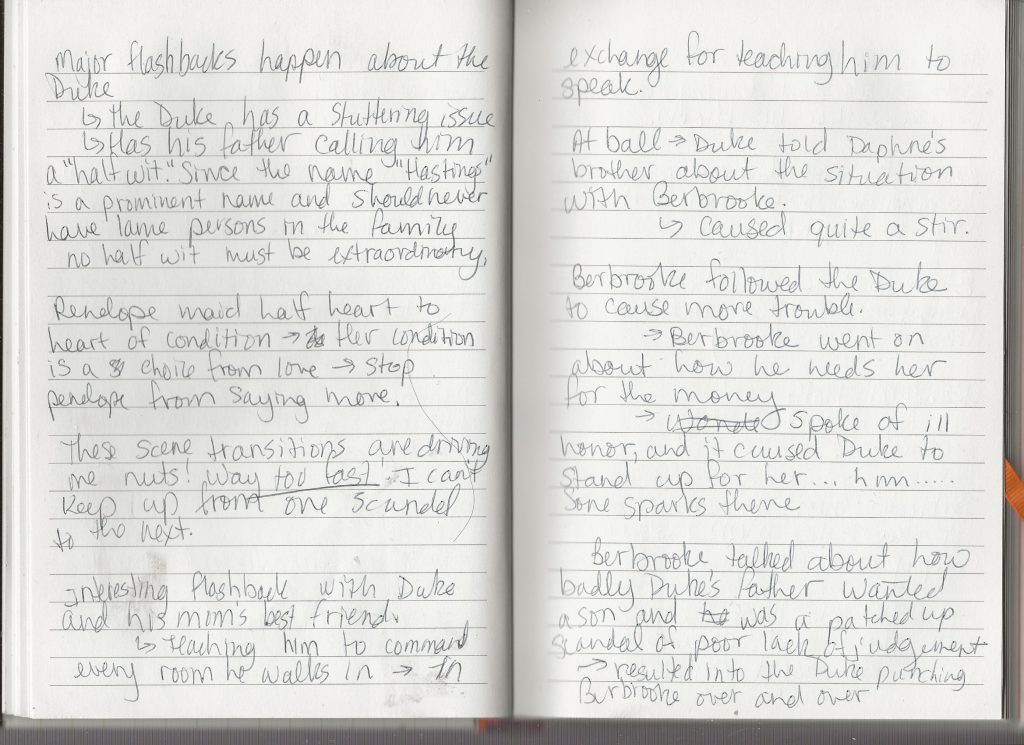 Major flashbacks happen about the
Duke
↳ the Duke has a stuttering issue
↳ Has his father calling him
a "half wit." Since the name "Hastings"
is a prominent name and should never
have lame persons in the family
no half wit must be extraordinary.
Penelope maid half heart to
heart of condition → Her condition
is a choice from love → stop
penelope from saying more.
These scene transitions are driving
me nuts! Way too fast. I can't
keep up from one scandel
to the next.
Interesting flashback with Duke
and his mom's best friend.
↳ teaching him to command
every room he walks in → In
exchange for teaching him to
speak.
At ball → Duke told Daphne's
brother about the situation
with Berbrooke.
↳ Caused quite a stir.
Berbrooke followed the Duke
to cause more trouble.
→ Berbrooke went on
about how he needs her
for the money
→ spoke of ill
honor, and it caused Duke to
stand up for her... hmm.....
Some sparks there
Berbrooke talked about how
badly Duke's father wanted
a son and was a patched up
scandal of poor lack of judgement
→ resulted into the Duke punching
Berbrooke over and over